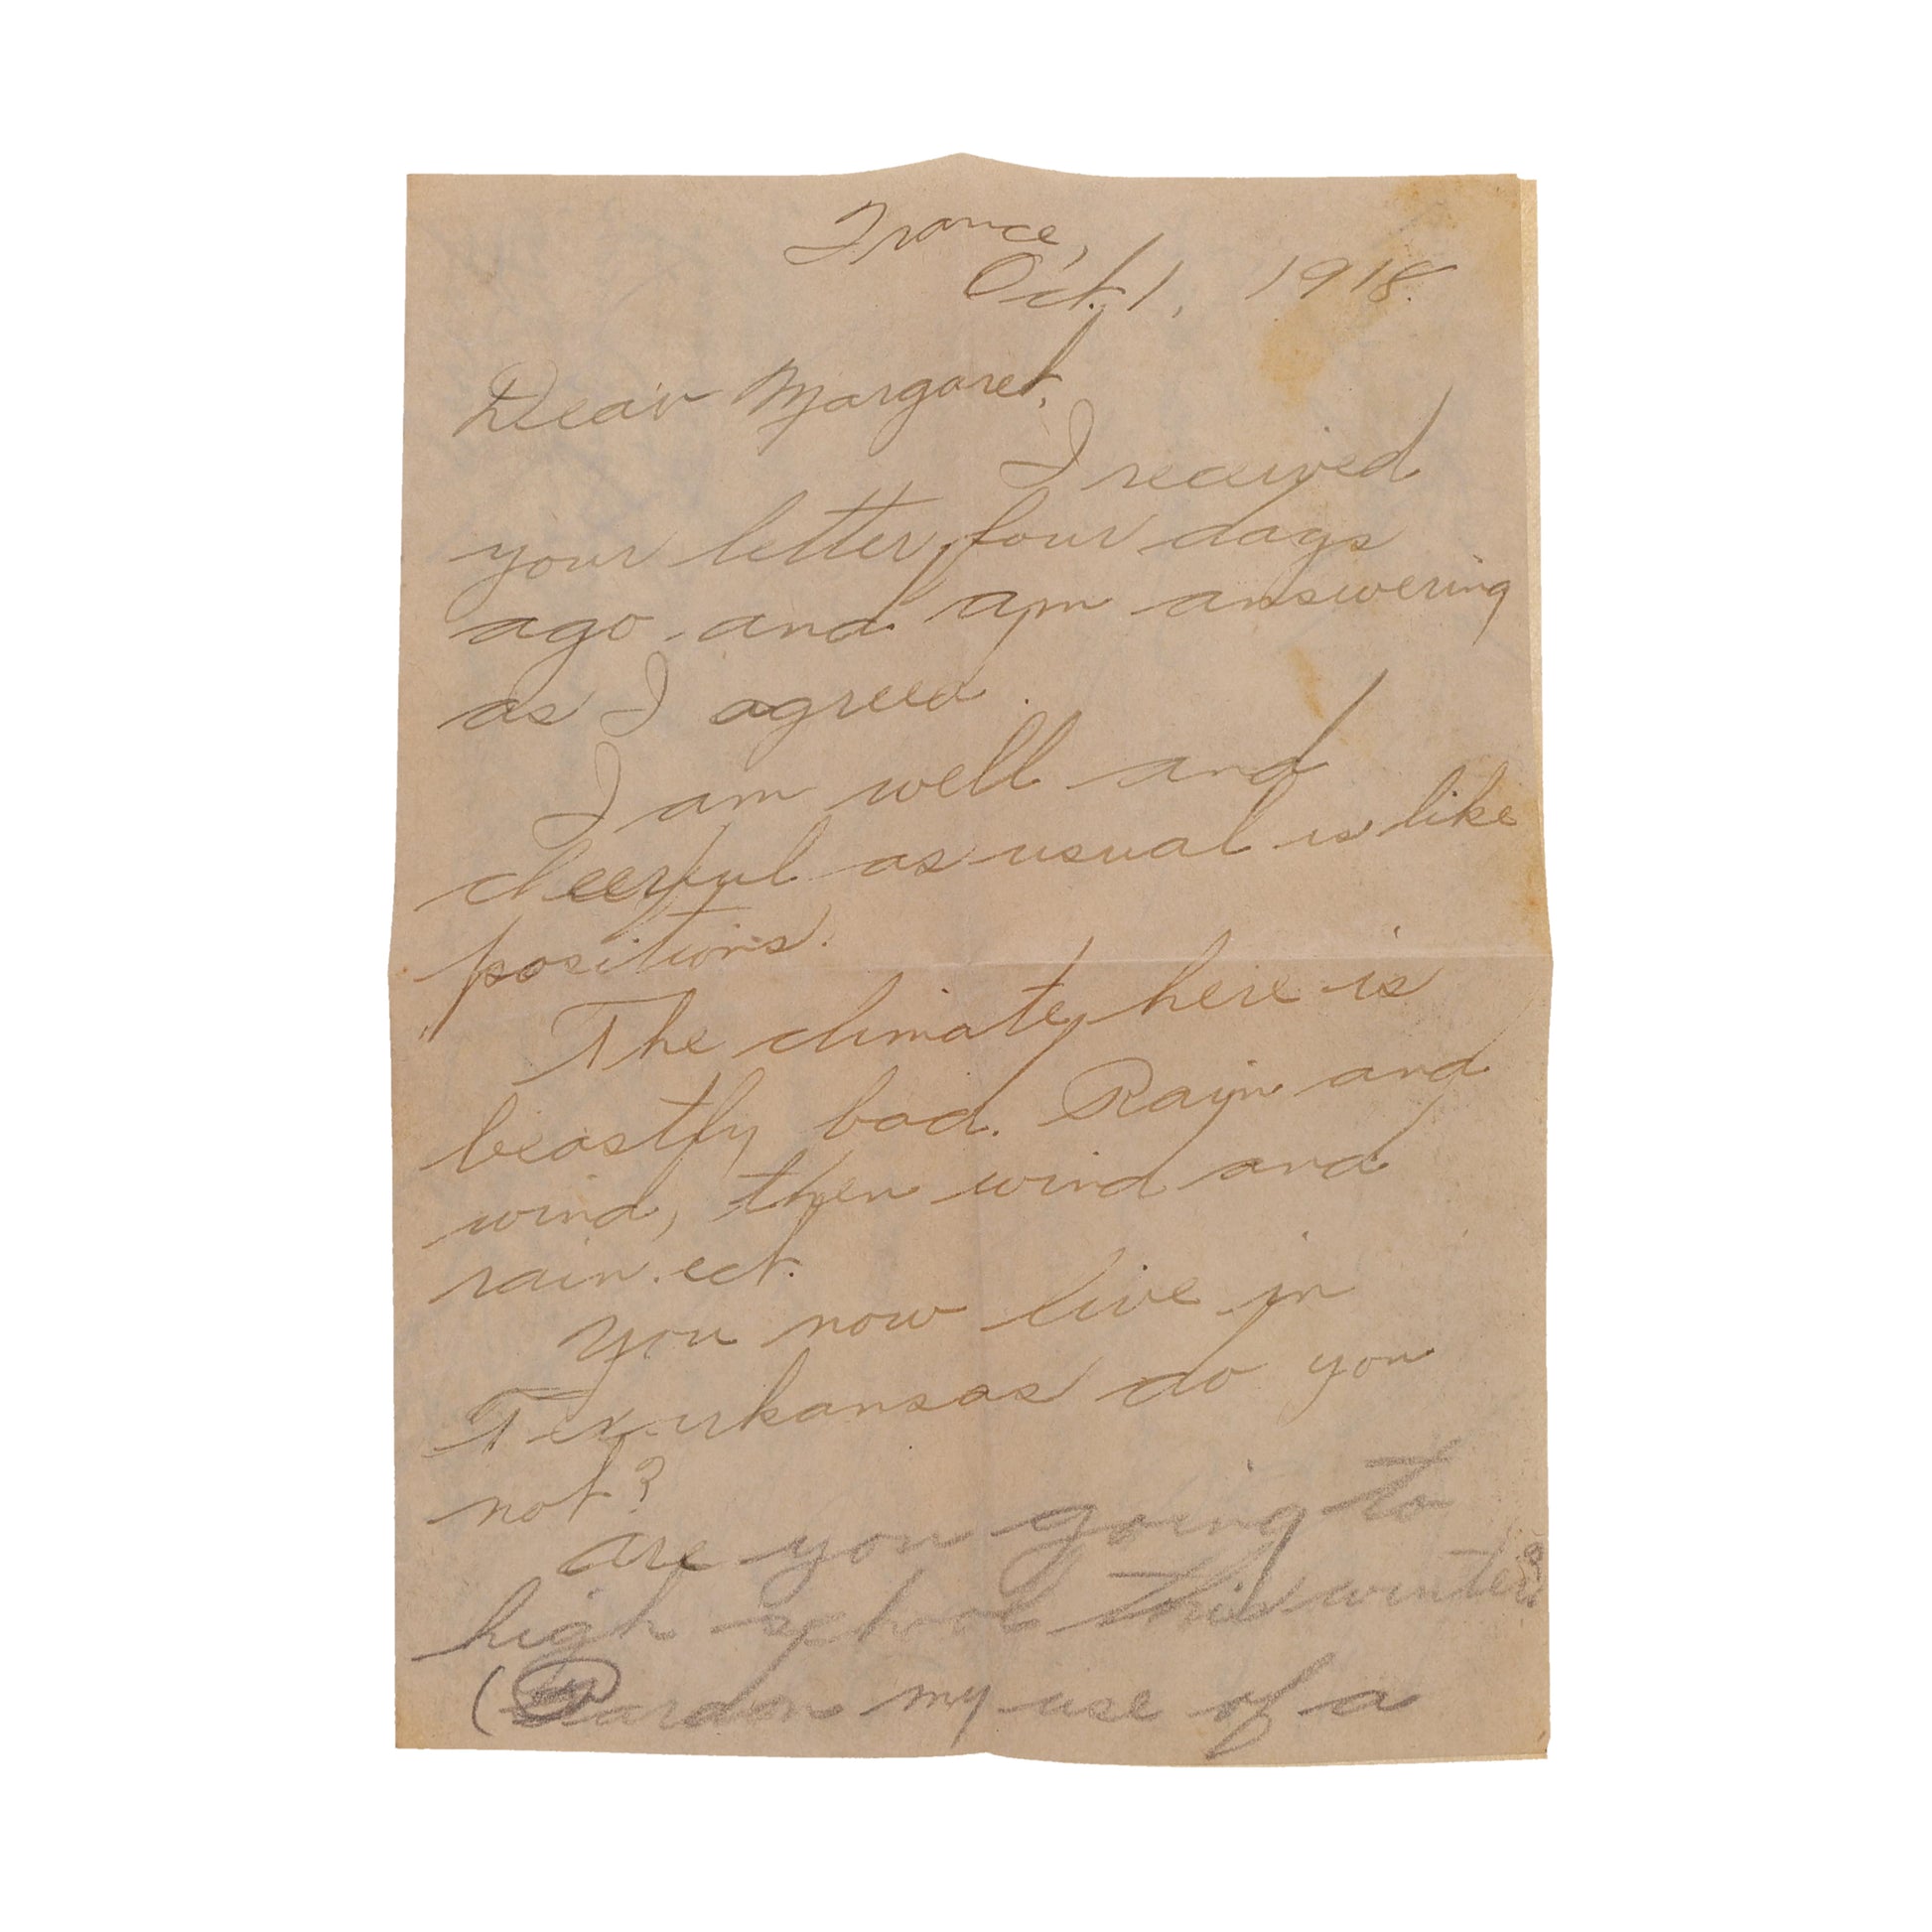 France,
Oct. 1, 1918.
Dear Margaret,
I received
your letter four days
ago and am answering
as I agreed.
I am well and
cheerful as usual is like
positions.
The climate here is
beastly bad. Rain and
wind, then wind and
rain. ect.
You now live in
Texarkansas do you
not?
are you going to
high school this winter?
(Pardon my use of a